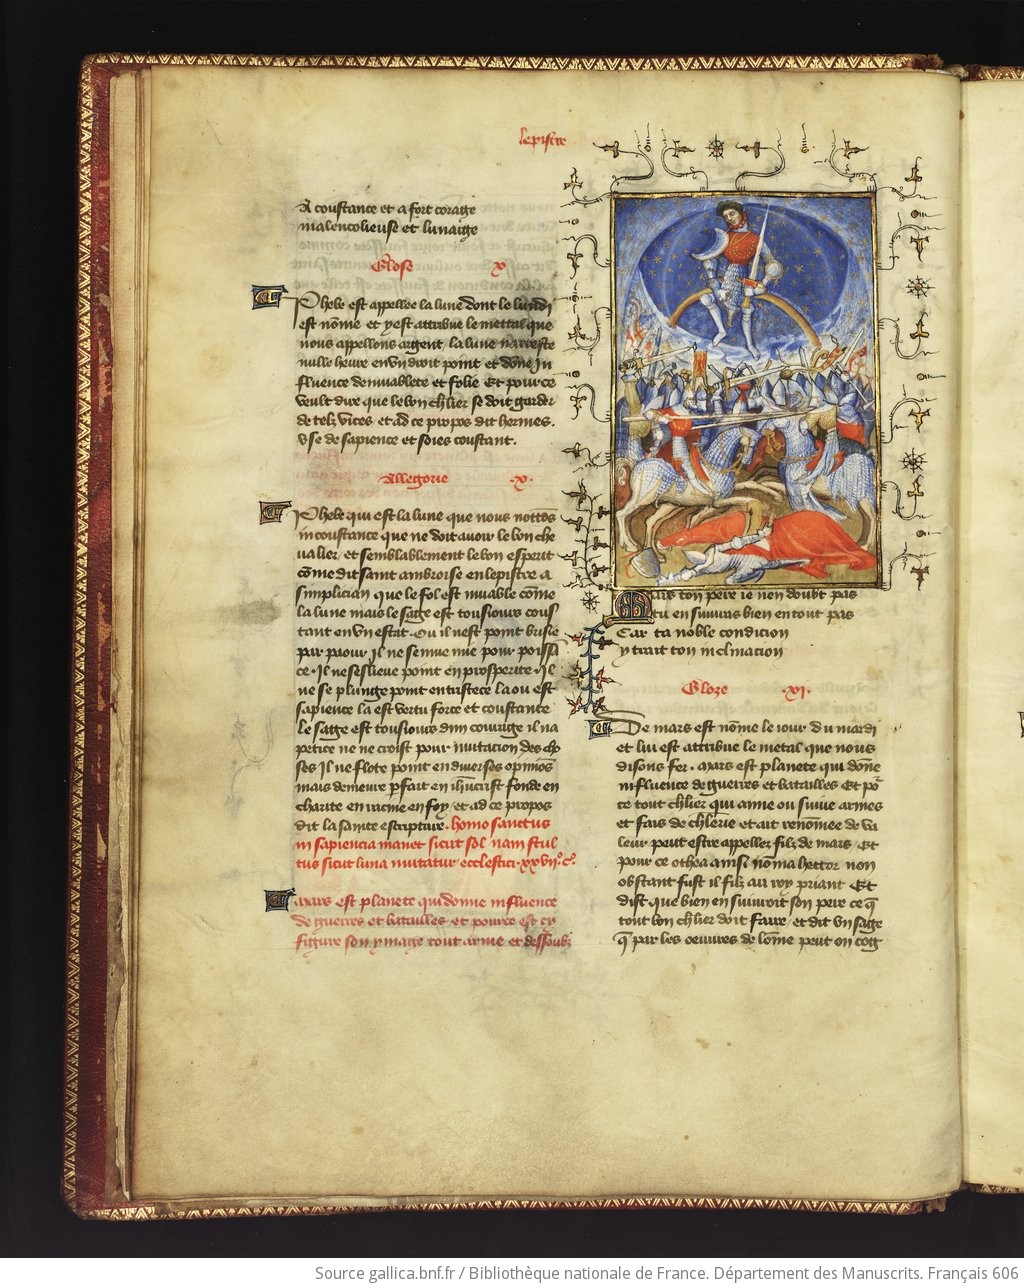 lepistre
A constance et a fort corage
malencolieuse et lunaige
Glose x
Phebe est appellee la lune dont le lundi
est nōme et y est attribue le mettal que
nous appellons argent la lune narreste
nulle heure en vn droit point et dōne in
fluence de muablete et folie Et pour ce
veult dire que le bon chlier se doit garder
de telz vices et ad ce propos dit hermes.
vse de sapience et soies constant.
Allegorie .x.
Phebe qui est la lune que nous nottōs
inconstance que ne doit auoir le bon che
ualier et semblablement le bon esperit
cōme dit saint ambroise en lepistre a
simplician que le fol est muable cōme
la lune mais le sage est tousiours cons
tant en vn estat. Ou il nest point brisie
par paour Il ne se mue mie pour poissā
ce. Il ne sesslieue point en prosperite. Il
ne se plunge point en tristece la ou est
sapience la est vertu force et constance
le sage est tousiours dun courage il na
petice ne ne croist pour mutacion des cho
ses Il ne flote point en diuerses opiniōs
mais demeure pfait en ihucrist fonde en
charite enracine en foy et ad ce propos
dit la sainte escripture. homo sanctus
in sapiencia manet sicut sol nam stul
tus sicut luna mutatur ecclestici .xxvii.° c°.
Mars est planete qui donne influence
de guerres et batailles et pour ce est cy
figure son ymage tout arme et dessoubz
Mars ton pere ie nen doubt pas
tu ensuiuras bien en tout pas
Car ta noble condicion
y trait ton inclinacion
Gloze .xi.
De mars est nōme le iour du mardi
et lui est attribue le metal que nous
disons fer. Mars est planete qui dōne
influence de guerres et batailles Et po'
ce tout chlier qui aime ou suiue armes
et fais de chlerie et ait renōmee de va
leur peut estre appellez filz de mars. Et
pour ce othea ainsi nōma hector non
obstant fust il filz au roy priant Et
dist que bien ensuiuroit son pere ce q̄
tout bon chlier doit faire et dit vn sage
q̄ par les oeuures de lōme peut on cog
Source gallica.bnf.fr / Bibliothèque nationale de France. Département des Manuscrits. Français 606